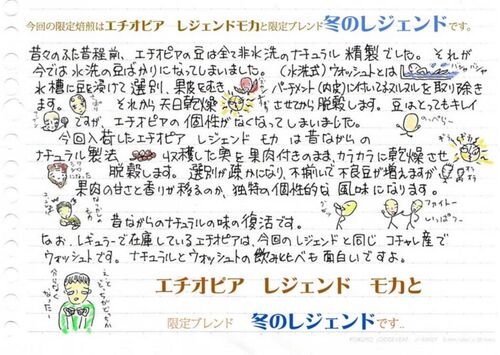 今回の限定焙煎はエチオピア レジェンドモカと限定ブレンド冬のレジェンドです。
昔々のふた昔程前、エチオピアの豆は全て非水洗のナチュラル精製でした。それが
今では水洗の豆ばかりになってしまいました。(水洗式)ウォッシュとは
水槽に豆を漬けて選別、果皮をむき パーチメント(内皮)に付いてるヌルヌルを取り除き
ます。 それから天日乾燥 させてから脱穀します。豆はとってもキレイ
ですが、エチオピアの個性がなくなってしまいました。
のっぺらー
今回入荷したエチオピア レジェンド モカ は昔ながらの
ナチュラル製法 収穫した実を果肉付きのまま、カラカラに乾燥させ
脱穀します。選別が疎かになり、不揃いで不良豆が増えますが
果肉の甘さと香りが移るのか、独特の個性的な風味になります。
ファイトー
いっぱーつ
昔ながらのナチュラルの味の復活です。
なお、レギュラーで在庫しているエチオピアは、今回のレジェンドと同じ コチャレ産で
ウォッシュです。ナチュラルとウォッシュの飲み比べも面白いですよ。
エチオピア レジェンド モカと
限定ブレンド 冬のレジェンドです..